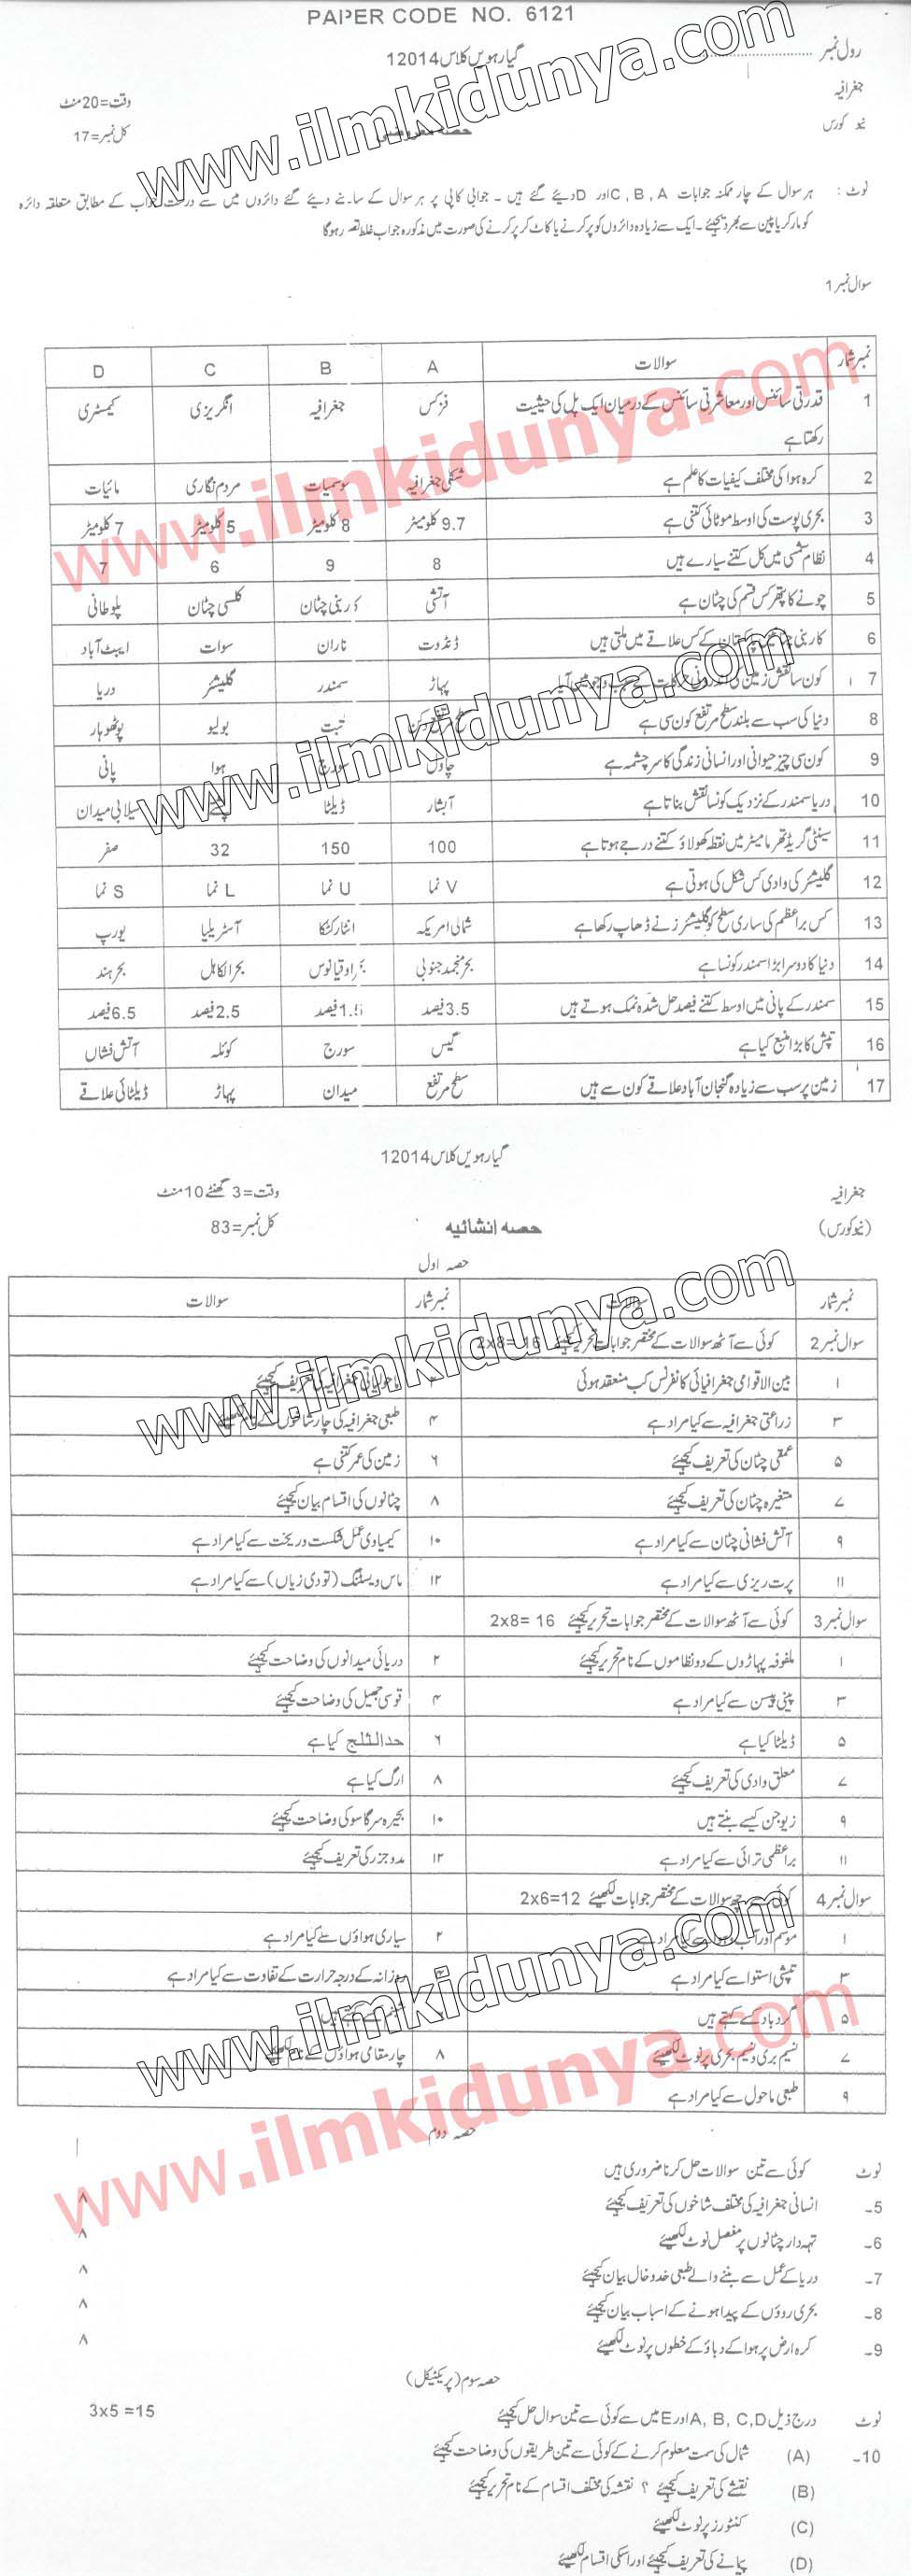 PAPER CODE NO. 6121
رول نمبر
گیارہویں کلاس 12014
جغرافیہ
وقت=20 منٹ
نیو کورس
کل نمبر=17
نوٹ : ہر سوال کے چار ممکنہ جوابات A ,B ,C اور D دیئے گئے ہیں ۔ جوابی کاپی پر ہر سوال کے سامنے دیئے گئے دائروں میں سے درست جواب کے مطابق متعلقہ دائرہ
کو مارکر یا پین سے بھر دیجیئے ۔ ایک سے زیادہ دائروں کو پر کرنے یا کاٹ کر پر کرنے کی صورت میں مذکورہ جواب غلط تصور ہوگا
سوال نمبر 1
نمبر شمار سوالات A B C D
1 قدرتی سائنس اور معاشرتی سائنس کے درمیان ایک پل کی حیثیت فزکس جغرافیہ انگریزی کیمسٹری
رکھتا ہے
2 کرہ ہوا کی مختلف کیفیات کا علم ہے شکلی جغرافیہ موسمیات مردم نگاری مائیات
3 بحری پوست کی اوسط موٹائی کتنی ہے 9.7 کلومیٹر 8 کلومیٹر 5 کلومیٹر 7 کلومیٹر
4 نظام شمسی میں کل کتنے سیارے ہیں 8 9 6 7
5 چونے کا پتھر کس قسم کی چٹان ہے آتشی کاربنی چٹان کلسی چٹان پلوطانی
6 کاربنی چٹانیں پاکستان کے کس علاقے میں ملتی ہیں ڈنڈوت ناران سوات ایبٹ آباد
7 کون سا نقش زمین کی اندرونی حرکات کے سبب وجود میں آیا پہاڑ سمندر گلیشئر دریا
8 دنیا کی سب سے بلند سطح مرتفع کون سی ہے سطح مرتفع دکن تبت بولیو پوٹھوہار
9 کون سی چیز حیوانی اور انسانی زندگی کا سرچشمہ ہے چاول سورج ہوا پانی
10 دریا سمندر کے نزدیک کونسا نقش بناتا ہے آبشار ڈیلٹا پشتے سیلابی میدان
11 سینٹی گریڈ تھرمامیٹر میں نقطہ کھولاؤ کتنے درجے ہوتا ہے 100 150 32 صفر
12 گلیشئر کی وادی کس شکل کی ہوتی ہے V نما U نما L نما S نما
13 کس براعظم کی ساری سطح کو گلیشئرز نے ڈھاپ رکھا ہے شمالی امریکہ انٹارکٹکا آسٹریلیا یورپ
14 دنیا کا دوسرا بڑا سمندر کونسا ہے بحر منجمد جنوبی بحر اوقیانوس بحرالکاہل بحر ہند
15 سمندر کے پانی میں اوسط کتنے فیصد حل شدہ نمک ہوتے ہیں 3.5 فیصد 1.5 فیصد 2.5 فیصد 6.5 فیصد
16 تپش کا بڑا منبع کیا ہے گیس سورج کوئلہ آتش فشاں
17 زمین پر سب سے زیادہ گنجان آباد علاقے کون سے ہیں سطح مرتفع میدان پہاڑ ڈیلٹائی علاقے
گیارہویں کلاس 12014
جغرافیہ
وقت=3 گھنٹے 10 منٹ
(نیو کورس)
حصہ انشائیہ
کل نمبر=83
حصہ اول
نمبر شمار سوالات نمبر شمار سوالات
سوال نمبر 2 کوئی سے آٹھ سوالات کے مختصر جوابات تحریر کیجیئے 2x8= 16
۱ بین الاقوامی جغرافیائی کانفرنس کب منعقد ہوئی ۲ ماحولیاتی جغرافیہ کی تعریف کیجیئے
۳ زراعتی جغرافیہ سے کیا مراد ہے ۴ طبعی جغرافیہ کی چار شاخوں کے نام لکھیئے
۵ عمقی چٹان کی تعریف کیجیئے ۶ زمین کی عمر کتنی ہے
۷ متغیرہ چٹان کی تعریف کیجیئے ۸ چٹانوں کی اقسام بیان کیجیئے
۹ آتش فشانی چٹان سے کیا مراد ہے ۱۰ کیمیاوی عمل شکست و ریخت سے کیا مراد ہے
۱۱ پرت ریزی سے کیا مراد ہے ۱۲ ماس ویسٹنگ (تودی زیاں) سے کیا مراد ہے
سوال نمبر 3 کوئی سے آٹھ سوالات کے مختصر جوابات تحریر کیجیئے 2x8= 16
۱ ملفوفہ پہاڑوں کے دو نظاموں کے نام تحریر کیجیئے ۲ دریائی میدانوں کی وضاحت کیجیئے
۳ پینی پیسن سے کیا مراد ہے ۴ قوسی جھیل کی وضاحت کیجیئے
۵ ڈیلٹا کیا ہے ۶ حد الثلج کیا ہے
۷ معلق وادی کی تعریف کیجیئے ۸ ارگ کیا ہے
۹ زیوجن کیسے بنتے ہیں ۱۰ بحیرہ سرگاسو کی وضاحت کیجیئے
۱۱ براعظمی ترائی سے کیا مراد ہے ۱۲ مدوجزر کی تعریف کیجیئے
سوال نمبر 4 کوئی سے چھ سوالات کے مختصر جوابات لکھیئے 2x6=12
۱ موسم اور آب و ہوا سے کیا مراد ہے ۲ سیاری ہواؤں سے کیا مراد ہے
۳ تپشی استوا سے کیا مراد ہے ۴ روزانہ کے درجہ حرارت کے تفاوت سے کیا مراد ہے
۵ گردباد کسے کہتے ہیں ۶ کسے کہتے ہیں
۷ نسیم بری و نسیم بحری پر نوٹ لکھیئے ۸ چار مقامی ہواؤں کے نام لکھیئے
۹ طبعی ماحول سے کیا مراد ہے
حصہ دوم
نوٹ کوئی سے تین سوالات حل کرنا ضروری ہیں
5- انسانی جغرافیہ کی مختلف شاخوں کی تعریف کیجیئے ۸
6- تہہ دار چٹانوں پر مفصل نوٹ لکھیئے ۸
7- دریا کے عمل سے بننے والے طبعی خدوخال بیان کیجیئے ۸
8- بحری روؤں کے پیدا ہونے کے اسباب بیان کیجیئے ۸
9- کرہ ارض پر ہوا کے دباؤ کے خطوں پر نوٹ لکھیئے ۸
حصہ سوم (پریکٹیکل)
نوٹ درج ذیل A, B, C,D اور E میں سے کوئی سے تین سوال حل کیجیئے 3x5 =15
10- (A) شمال کی سمت معلوم کرنے کے کوئی سے تین طریقوں کی وضاحت کیجیئے
(B) نقشے کی تعریف کیجیئے ؟ نقشہ کی مختلف اقسام کے نام تحریر کیجیئے
(C) کنٹورز پر نوٹ لکھیئے
(D) پیمانے کی تعریف کیجیئے اور اسکی اقسام لکھیئے
www.ilmkidunya.com
www.ilmkidunya.com
www.ilmkidunya.com
www.ilmkidunya.com
www.ilmkidunya.com
www.ilmkidunya.com